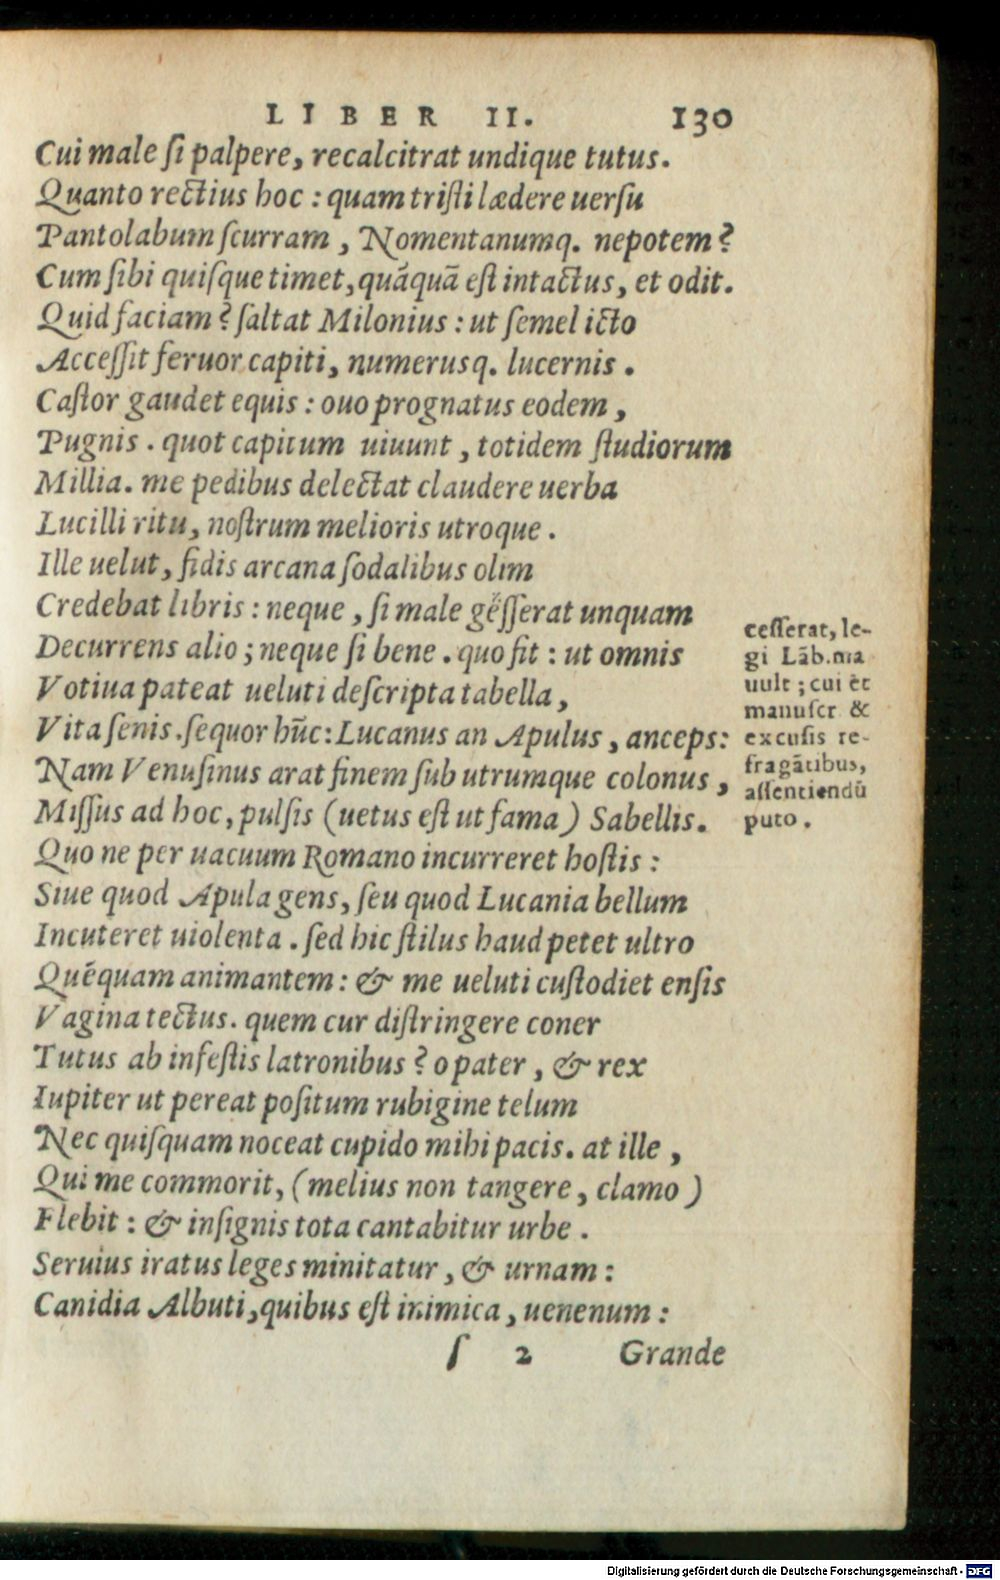 LIBER II. 130
Cui male ſi palpere, recalcitrat undique tutus.
Quanto rectius hoc : quam triſti lædere uerſu
Pantolabum ſcurram , Nomentanumq. nepotem ?
Cum ſibi quiſque timet, quãquã eſt intactus, et odit.
Quid faciam ? ſaltat Milonius : ut ſemel icto
Acceſſit feruor capiti, numerusq. lucernis .
Caſtor gaudet equis : ouo prognatus eodem ,
Pugnis . quot capitum uiuunt , totidem ſtudiorum
Millia. me pedibus delectat claudere uerba
Lucilli ritu, noſtrum melioris utroque .
Ille uelut, fidis arcana ſodalibus olim
Credebat libris : neque , ſi male geſſerat unquam
Decurrens alio ; neque ſi bene . quo fit : ut omnis
Votiua pateat ueluti deſcripta tabella ,
Vita ſenis .ſequor hũc: Lucanus an Apulus , anceps:
Nam Venuſinus arat finem ſub utrumque colonus ,
Miſſus ad hoc, pulſis (uetus eſt ut fama) Sabellis.
Quo ne per uacuum Romano incurreret hoſtis :
Siue quod Apula gens, ſeu quod Lucania bellum
Incuteret uiolenta . ſed hic ſtilus haud petet ultro
Quẽquam animantem : & me ueluti cuſtodiet enſis
Vagina tectus. quem cur diſtringere coner
Tutus ab infeſtis latronibus ? o pater , & rex
Iupiter ut pereat poſitum rubigine telum
Nec quiſquam noceat cupido mihi pacis. at ille ,
Qui me commorit, (melius non tangere , clamo )
Flebit : & inſignis tota cantabitur urbe .
Seruius iratus leges minitatur , & urnam :
Canidia Albuti,quibus eſt inimica , uenenum :
ſ 2 Grande
ceſſerat, le-
gi Lãb.ma
uult ; cui et
manuſcr &
excuſis re-
fragãtibus,
aſſentiendũ
puto .
Digitalisierung gefördert durch die Deutsche Forschungsgemeinschaft - DFG